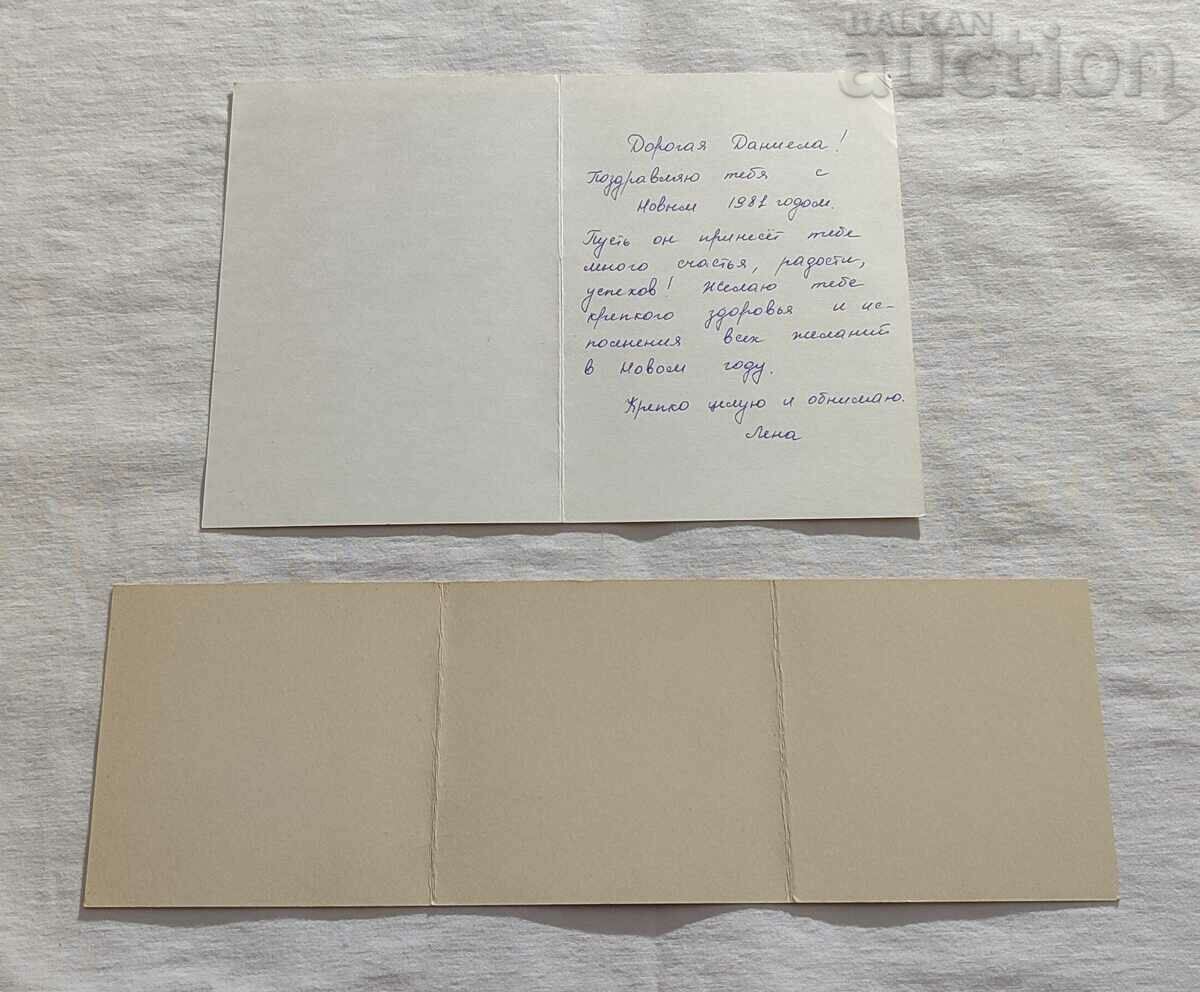 BALKAN
auction
Дорогая Даниела!
Поздравляю тебя с
Новым 1981 годом.
Пусть он принесёт тебе
много счастья, радости,
успехов! Желаю тебе
крепкого здоровья и ис-
полнения всех желаний
в Новом году.
Крепко целую и обнимаю.
Лена